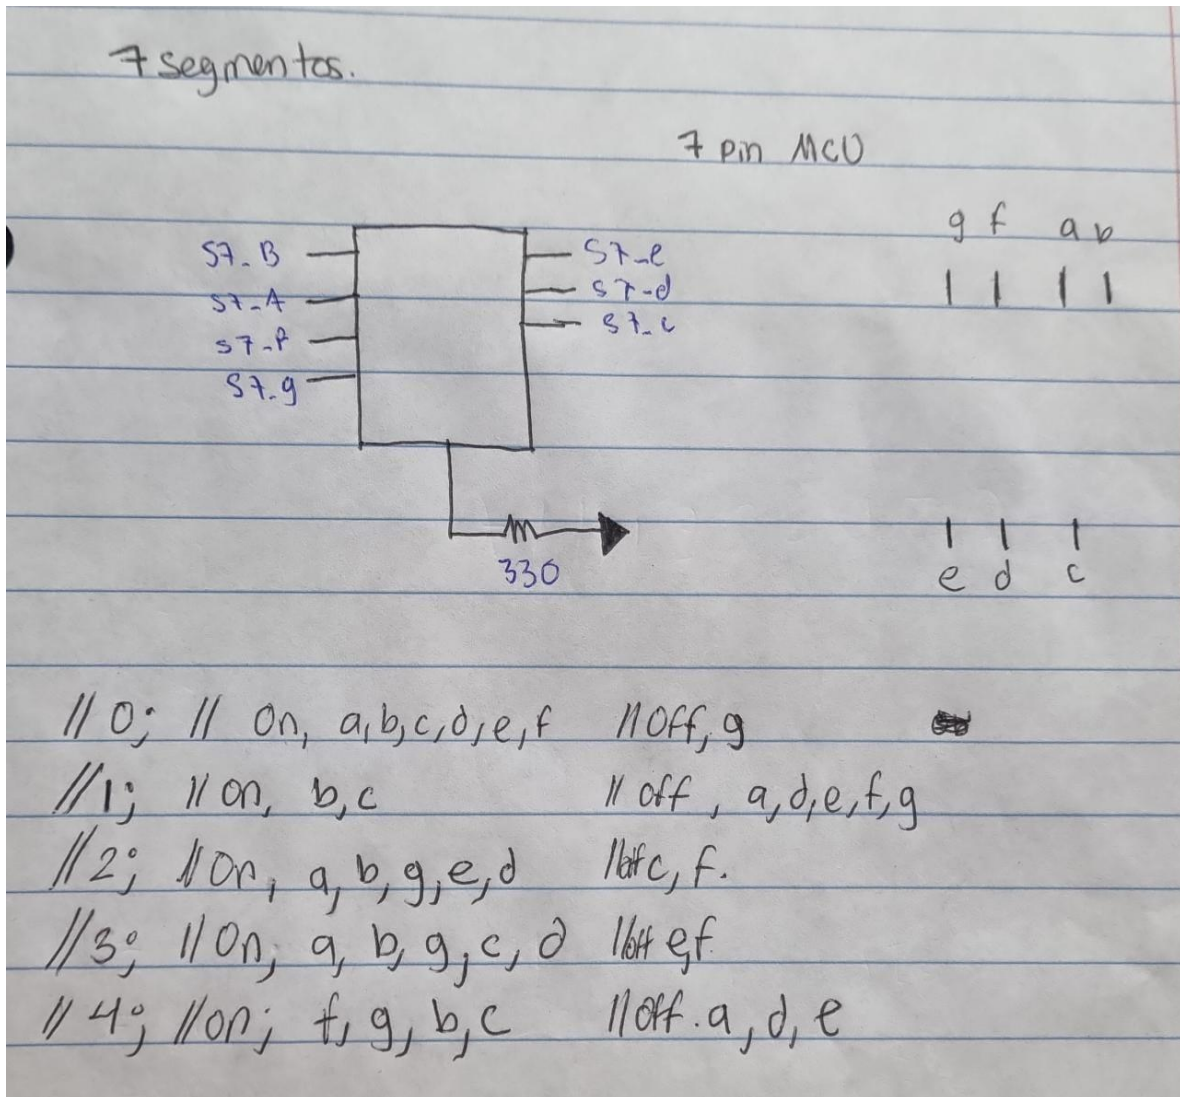 7 segmentos.
7 pin MCU
g f a b
S7_B S7_e
S7_A S7_d
S7_f S7_c
S7_g
330
e d c
//0; // On, a,b,c,d,e,f //Off, g
//1; // on, b,c // off, a,d,e,f,g
//2; //On, a, b, g, e, d //off c, f.
//3; //On; a, b, g, c, d //off e,f.
//4; //on; f, g, b, c //Off. a, d, e